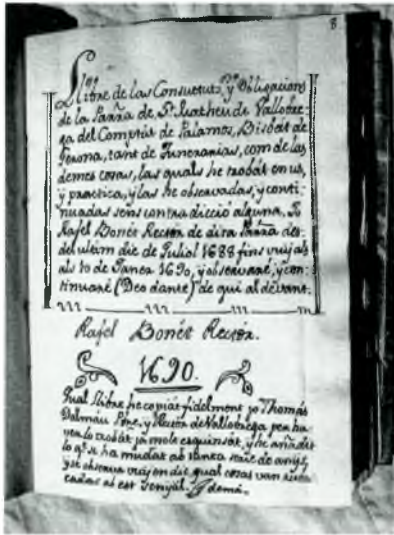 8
Llibre de las Consuetuts, y Obligacions
de la Parrª de St. Matheu de Vallobre-
ga del Comptat de Palamos, Bisbat de
Gerona, tant de Funerarias, com de las
demes cosas, las quals he trobat en us,
y practica, y las he observadas, y conti-
nuadas sens contradicció alguna. Jo
Rafel Bonét Rector de dita Parrª des-
del ultim die de Juliol 1688 fins vuy als
als 10 de Janer 1690, y observaré, y con-
tinuaré (Deo dante) de qui al devant.
Rafel Bonét Rector.
1690.
Qual Llibre he copiat fidelment jo Thomás
Dalmau Pbre, y Rector de Vallobrega per ha-
verlo trobat ja molt esquinsat, y he añadit
lo q. se ha mudat ab tanta serie de anys,
y se observa vuy en dit qual cosas van
ab est senyal.